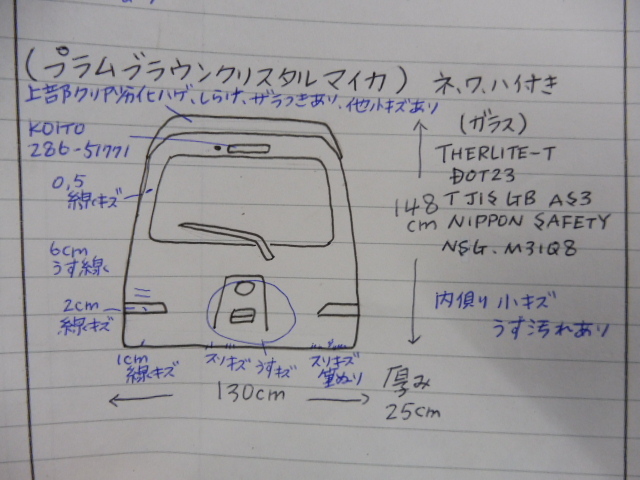 (プラムブラウンクリスタルマイカ) ネ、ワ、ハイ付き
上部クリア劣化ハゲ、しらけ、ザラつきあり、他小キズあり
KOITO
286-51771
(ガラス)
THERLITE-T
DOT23
TJIS GB AS3
NIPPON SAFETY
NSG. M31Q8
0,5
線キズ
148
cm
6cm
うす線
2cm
線キズ
内側り小キズ
うす汚れあり
1cm
線キズ
スリキズ
うすキズ
スリキズ
筆ぬり
130cm
厚み
25cm